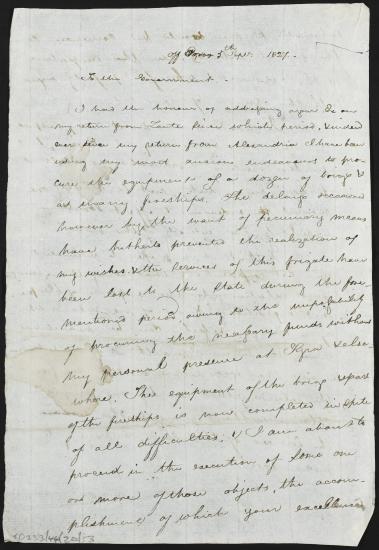 off Syra 5th Sept. 1827.
To the Government.
I had the honour of addressing your Ex on
my return from Zante since which period, & indeed
ever since my return from Alexandria I have been
using my most anxious endeavours to pro-
cure the equipments of a dozen of brigs &
as many fireships. The delays occasioned
however by the want of pecuniary means
have hitherto prevented the realization of
my wishes & the services of this frigate have
been lost to the State during the fore-
mentioned period owing to the impossibility
of procuring the necessary funds without
my personal presence at Syra & else
where. The equipment of the brigs & part
of the fireships is now completed in spite
of all difficulties, & I am about to
proceed in the execution of some one
or more of those objects, the accom-
plishment of which your excellencies